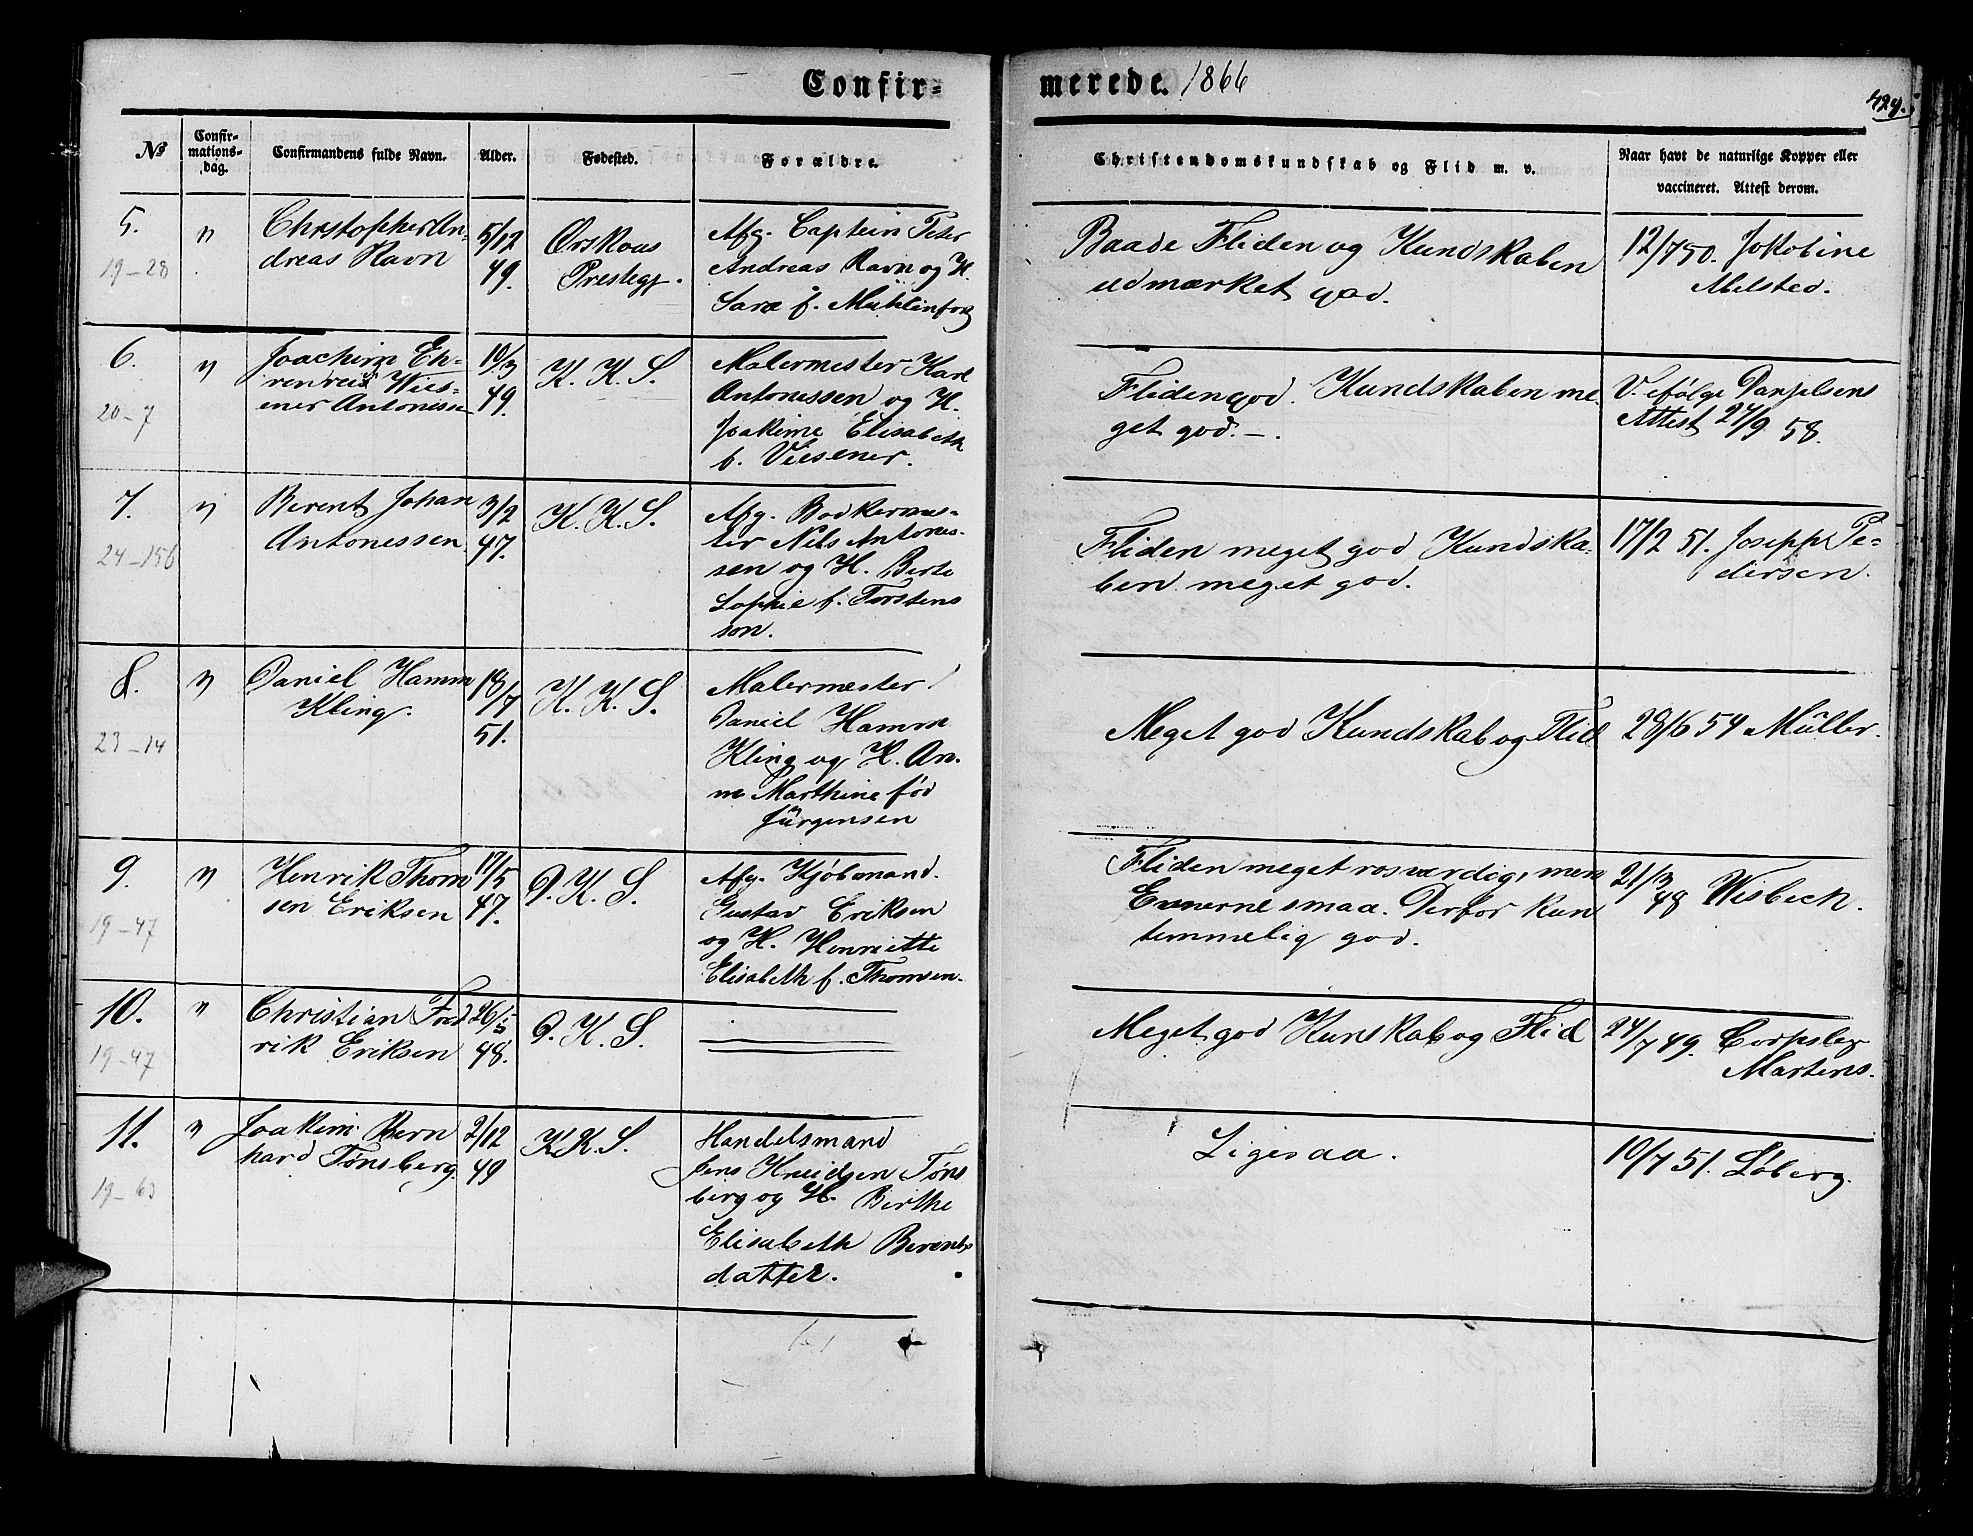 Confir-
merede. 1866
424.
No
Confir-
mations-
dag.
Confirmandens fulde Navn.
Alder.
Fødested.
Forældre.
Christendomskundskab og Flid m. v.
Naar havt de naturlige Kopper eller
vaccineret. Attest derom.
5.
19-28
"
Christopher An-
dreas Ravn
5/12
49.
Ørskous
Prestegj.
Afg. Captein Peter
Andreas Ravn og H.
Sara f.
Baade Fliden og Kundskaben
udmærket god.
12/7 50. Jokobine
Abelsted.
6.
20-7
"
Joachim Eh-
renreis Wies-
ener Antonisen
10/3
49.
K. K. S.
Malermester Karl
Antonessen og H.
Joakime Elisabeth
f. Viesener.
Fliden god. Kundskaben me-
get god. -.
V. efølge Danjelsens
Attest 27/9 58.
7.
24-156
"
Berent Johan
Antonessen
3/2
47.
K. K. S.
Afg. Bødkermes-
ter Nils Antones-
sen og H. Berte
Sophie f. Torstens
son.
Fliden meget god Kundska-
ben meget god.
17/2 51. Joseph Pe-
dersen.
8.
23-14
"
Daniel Hamm
Kling.
18/7
51.
K. K. S.
Malermester
Daniel Hamm
Kling og H. An-
na Marthine fød
Jürgensen
Meget god Kundskab og Flid
28/6 54 Müller.
9.
19-47
"
Henrik Thom
sen Eriksen
17/5
47.
D. K. S.
Afg. Kjøbmand.
Gustav Eriksen
og H. Henriette
Elisabeth f. Thomsen.
Fliden meget rosværdig, men
Evnerne smaa. Derfor kun
temmelig god.
21/3 48 Wesbeck.
10.
19-47
"
Christian Fred
rik Eriksen
26/5
48.
D. K. S.
Meget god Kunskab og Flid
24/7 49. Corpslæg
Martens.
11.
19-63
"
Joakim Bern
hard Tønsberg.
2/12
49
K K. S.
Handelsmand
Jens Knudsen Tøns
berg og H. Birthe
Elisabeth Berents
datter.
Ligesaa.
10/7 51. Løberg.